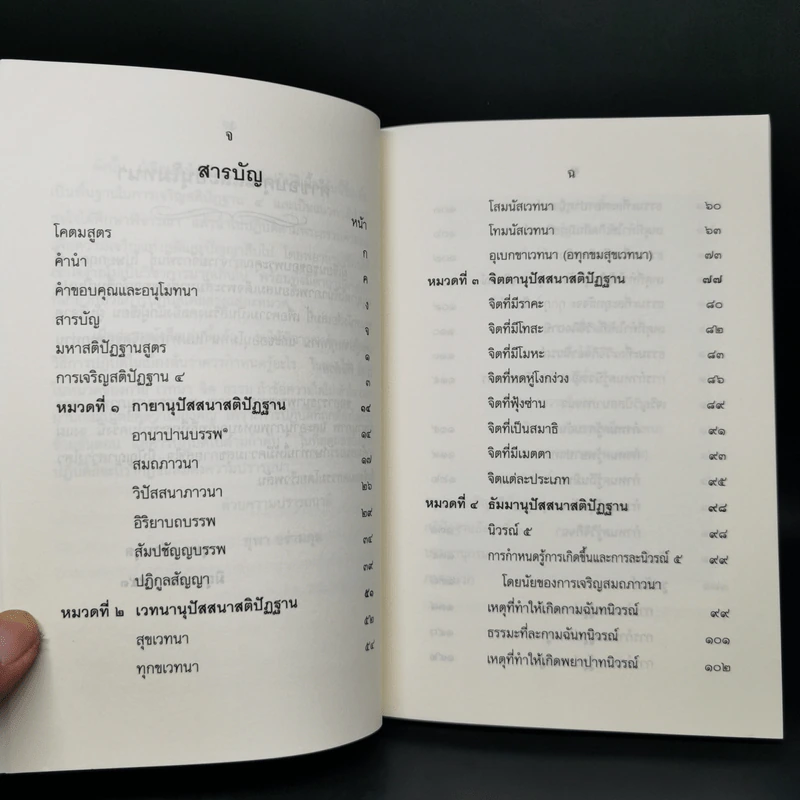 จ
สารบัญ
หน้า
โคตมสูตร ก
คำนำ ค
คำขอบคุณและอนุโมทนา ง
สารบัญ จ
มหาสติปัฏฐานสูตร ๑
การเจริญสติปัฏฐาน ๔ ๓
หมวดที่ ๑ กายานุปัสสนาสติปัฏฐาน ๑๔
อานาปานบรรพ ๑๔
สมถภาวนา ๑๗
วิปัสสนาภาวนา ๒๖
อิริยาบถบรรพ ๒๙
สัมปชัญญบรรพ ๓๔
ปฏิกูลสัญญา ๓๙
หมวดที่ ๒ เวทนานุปัสสนาสติปัฏฐาน ๕๑
สุขเวทนา ๕๒
ทุกขเวทนา ๕๔
ฉ
โสมนัสเวทนา ๖๐
โทมนัสเวทนา ๖๓
อุเบกขาเวทนา (อทุกขมสุขเวทนา) ๗๓
หมวดที่ ๓ จิตตานุปัสสนาสติปัฏฐาน ๗๗
จิตที่มีราคะ ๘๐
จิตที่มีโทสะ ๘๒
จิตที่มีโมหะ ๘๓
จิตที่หดหู่โงกง่วง ๘๖
จิตที่ฟุ้งซ่าน ๘๙
จิตที่เป็นสมาธิ ๙๑
จิตที่มีเมตตา ๙๓
จิตแต่ละประเภท ๙๕
หมวดที่ ๔ ธัมมานุปัสสนาสติปัฏฐาน ๙๘
นิวรณ์ ๕ ๙๘
การกำหนดรู้การเกิดขึ้นและการละนิวรณ์ ๕ ๙๙
โดยนัยของการเจริญสมถภาวนา
เหตุที่ทำให้เกิดกามฉันทนิวรณ์ ๙๙
ธรรมะที่ละกามฉันทนิวรณ์ ๑๐๑
เหตุที่ทำให้เกิดพยาปาทนิวรณ์ ๑๐๒